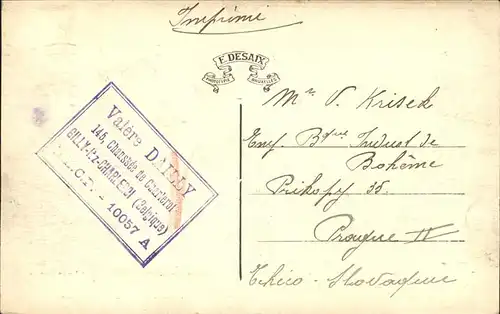 Imprimé
E. DESAIX
BRUXELLES
Valère DAILLY
145, Chaussée de
GILLY-lez-CHARLEROI (Belgique)
10057 A
Mr V. Krisek
Emp. Bque Indust de
Bohême
Prikopy 35
Prague II
Tchéco-Slovaquie